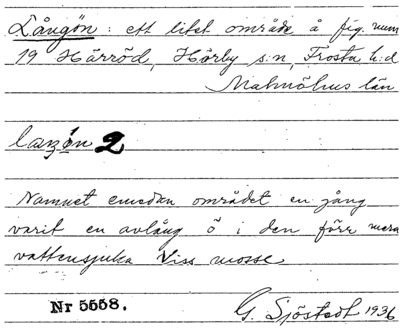 Långön: ett litet område å fig. num
19 Härröd, Hörby s:n, Frosta h:d
Malmöhus län
2
Namnet emedan området en gång
varit en avlång ö i den förr mera
vattensjuka Viss mosse.
Nr 5558.
G. Sjöstedt 1936